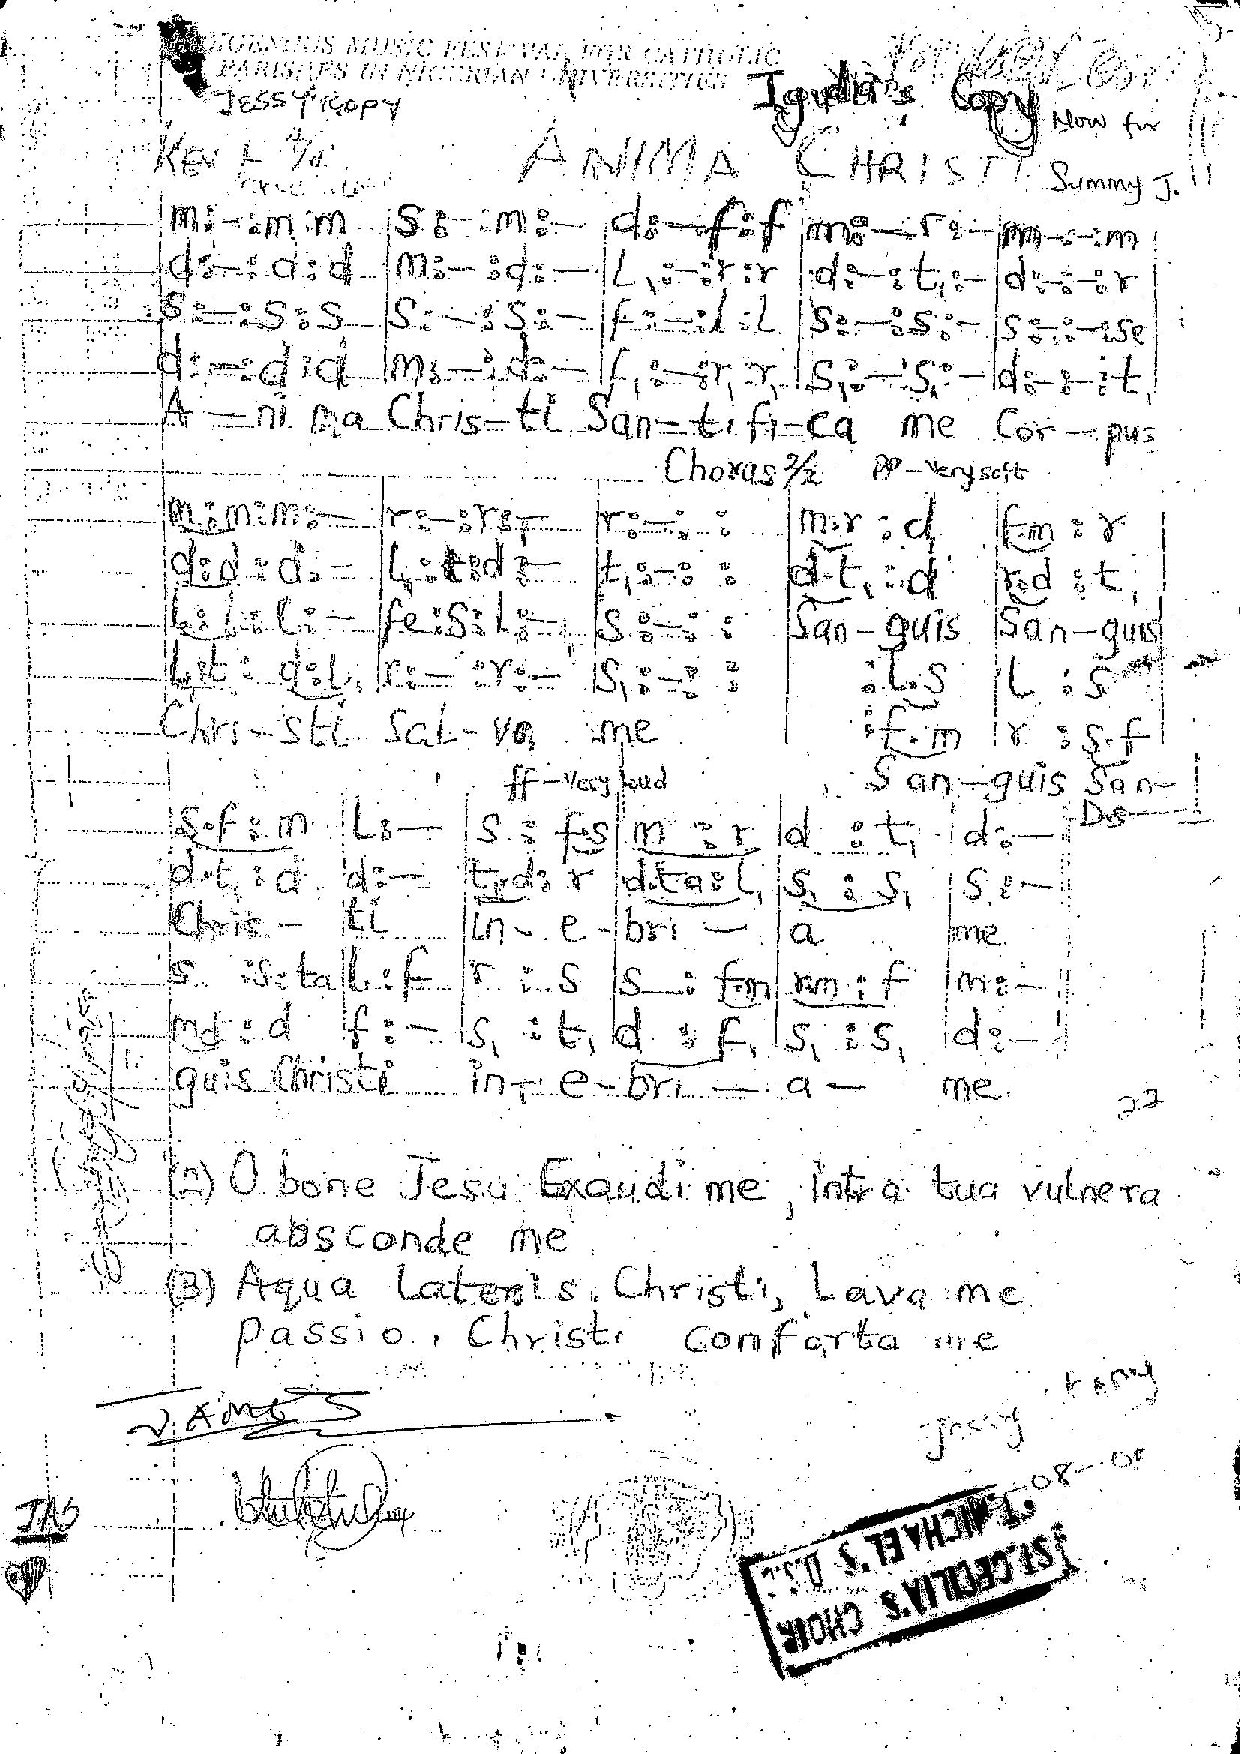 INDIGENOUS MUSIC FESTIVAL FOR CATHOLIC
PARISHES IN NIGERIAN UNIVERSITIES
JESSY KOPY
Igudia's Copy
Now for
Summy J.
Key F 4/4
ANIMA CHRISTI
m:-:m:m | s:-:m:- | d:-:f:f | m:-:r:- | m:-:-:m
d:-:d:d | m:-:d:- | l₁:-:r:r | d:-:t₁:- | d:-:-:r
s:-:s:s | s:-:s:- | f:-:l:l | s:-:s:- | s:-:-:se
d:-:d:d | m:-:d:- | f₁:-:r₁:r₁ | s₁:-:s₁:- | d:-:-:t₁
A-ni ma Chris-ti San-ti fi-ca me Cor-pus
Choras 2/2 PP-Very soft
m:m:m:- | r:-:r:- | r:-:-: | m.r:d | f.m:r
d:d:d:- | l₁:t:d:- | t₁:-:-: | d.t₁:d | r.d:t₁
l:l:l:- | fe:s:l:- | s:-:-: | San-guis San-guis
l₁:t₁:d:l₁ | r:-:r:- | s₁:-:-: | :l.s | l:s
Chri-sti Sal-va me
:f.m | r:s.f
San-guis San-
ff-Very loud
D.s
s.f:m | l:- | s:f.s | m:r | d:t₁ | d:-
d.t₁:d | d:- | t₁.d:r | d.ta:l₁ | s₁:s₁ | s:-
Chris-ti in-e-bri-a me
s:s:ta | l:f | r:s | s:f.m | r.m:f | m:-
m.d:d | f:- | s₁:t₁ | d:f₁ | s₁:s₁ | d:-
guis Christi in-e-bri-a-me
22
(2) O bone Jesu Exaudi me, intra tua vulnera
absconde me
(3) Aqua Lateris Christi, Lava me
passio Christi comforta me
JAMES
Jessy Kopy
08-00
JAS
ST. CECILIA'S CHOIR
ST. MICHAEL'S D.S.C